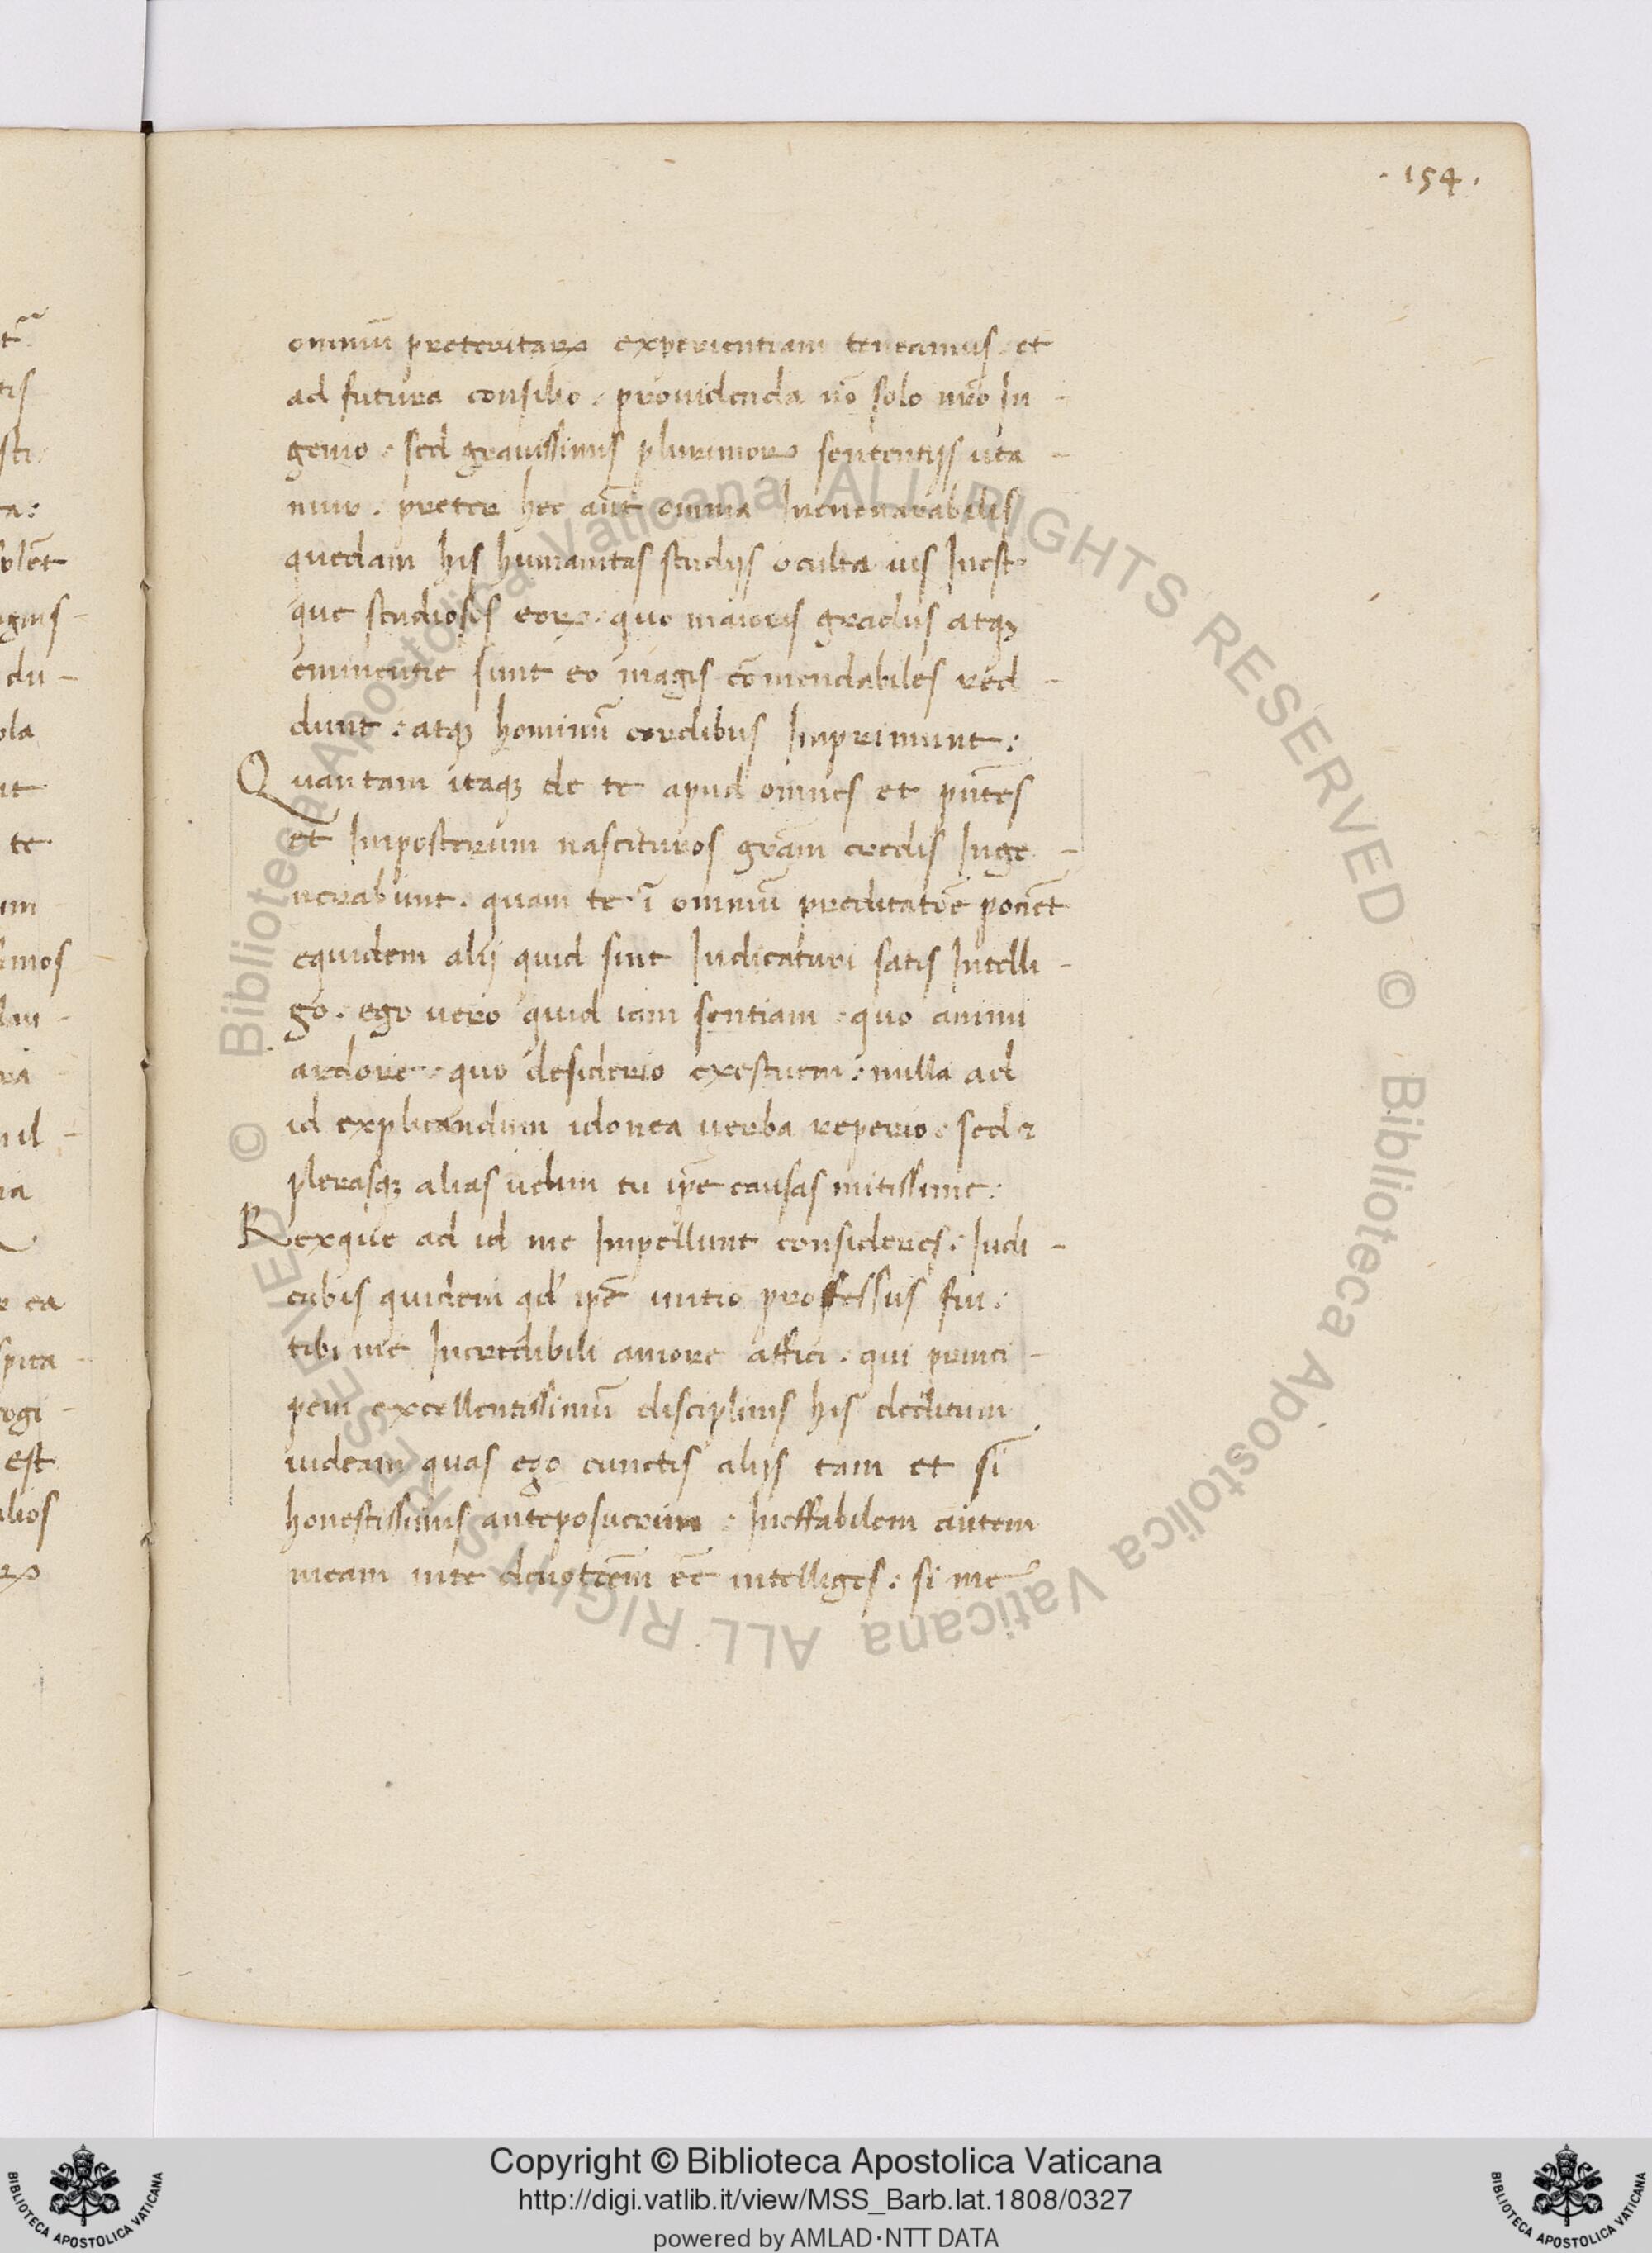 · 154 ·
omniū preteritarꝝ experientiam teneamus · et
ad futura consilio · prouidenda nō solo nr̄o In -
genio · sed grauissimis plurimorꝝ sententijs uta -
mur · preter hec aūt omnia Inenenarabilis
quedam his humanitas studijs oculta uis Inest
que studiosos eorꝝ · quo maioris gradus atqꝫ
eminentie sunt eo magis cōmendabiles red -
dunt : atqꝫ hominū cordibus Imprimunt :
Quantam itaqꝫ de te apud omnes et pn̄tes
et Imposterum nascituros grām credis Inge -
nerabunt · quam te ī omniū predicatōe ponet
equidem alij quid sint Iudicaturi satis Intelli -
go · ego uero quid iam sentiam · quo animi
ardore · quo desiderio exestuem : nulla ad
id explicandum idonea uerba reperio · sed
plerasqꝫ alias uelim tu ip̄e causas mitissime :
Rexque ad id me Impellunt consideres : Iudi -
cabis quidem qd' ip̄e initio professus fui :
tibi me Incredibili amore affici · qui princi -
pem excellentissimū disciplinis his deditum
uideam quas ego cunctis alijs tam et si
honestissimis anteposuerim : Ineffabilem autem
meam inte deuotōem eē intelliges : si me
tis
sti
ta :
plēt
gnis -
du -
ola
te
um
imos
lau -
nil -
ea
spira -
cogi -
est
alios
Copyright © Biblioteca Apostolica Vaticana
http://digi.vatlib.it/view/MSS_Barb.lat.1808/0327
powered by AMLAD·NTT DATA
BIBLIOTECA APOSTOLICA VATICANA
BIBLIOTECA APOSTOLICA VATICANA
© Biblioteca Apostolica Vaticana ALL RIGHTS RESERVED © Biblioteca Apostolica Vaticana ALL RIGHTS RESERVED